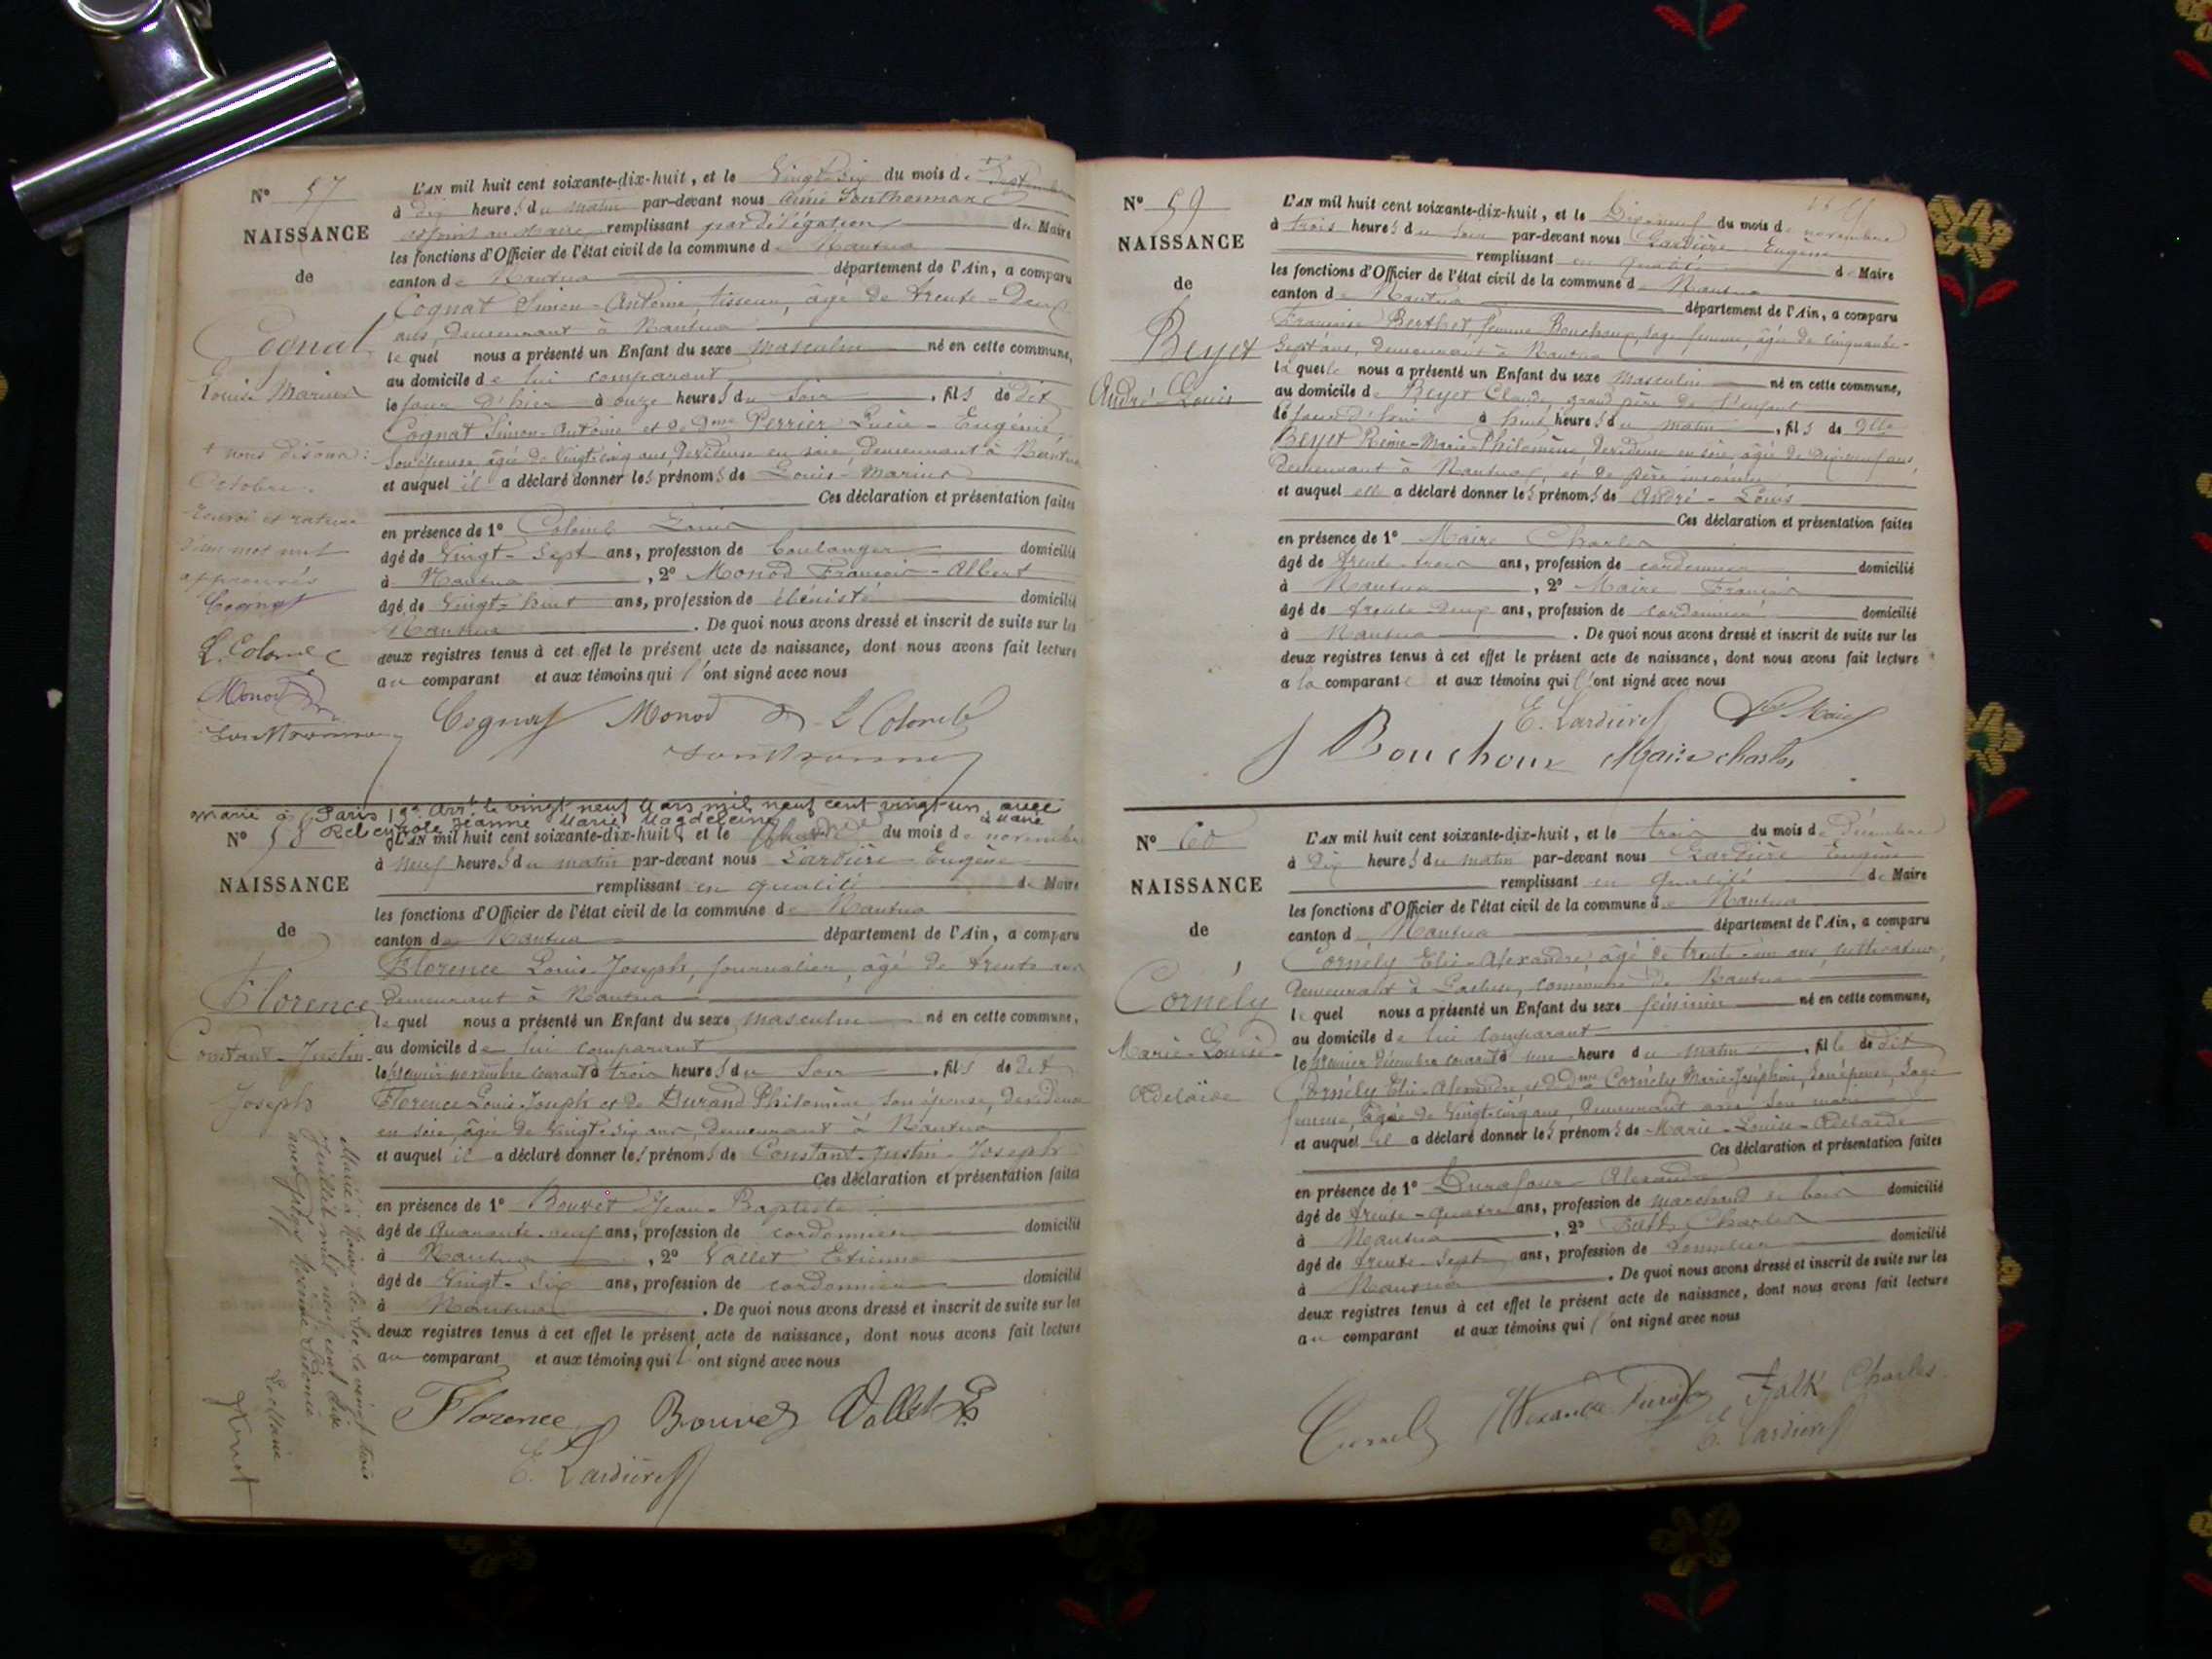 N° 57
NAISSANCE
de
Cognat
Louis Marius
+ nous disons :
Octobre.
renvoi et rature
d'un mot nul
approuvés
Cognat
L. Colomb
Monod
L'AN mil huit cent soixante-dix-huit, et le Vingt-six du mois de Septembre
à dix heures du matin par-devant nous Aimé
adjoint au Maire remplissant par délégation du Maire
les fonctions d'Officier de l'état civil de la commune de Nantua
canton de Nantua département de l'Ain, a comparu
Cognat Simon-Antoine, tisseur, âgé de trente-deux
ans, demeurant à Nantua
lequel nous a présenté un Enfant du sexe masculin né en cette commune,
au domicile de lui comparant
le jour d'hier à onze heures du soir, fils de dit
Cognat Simon-Antoine et de Dme Perrier Lucie-Eugénie
son épouse, âgée de vingt-cinq ans, dévideuse en soie, demeurant à Nantua
et auquel il a déclaré donner les prénoms de Louis-Marius
Ces déclaration et présentation faites
en présence de 1° Colomb Louis
âgé de Vingt-sept ans, profession de boulanger domicilié
à Nantua, 2° Monod François-Albert
âgé de Vingt-huit ans, profession de ébéniste domicilié
Nantua. De quoi nous avons dressé et inscrit de suite sur les
deux registres tenus à cet effet le présent acte de naissance, dont nous avons fait lecture
au comparant et aux témoins qui l'ont signé avec nous
Cognat Monod L Colomb
marié à Paris arrt le vingt neuf Mars mil neuf cent vingt-un avec
Jeanne Marie Magdeleine
N° 58
NAISSANCE
de
Florence
Constant-Justin-
Joseph
L'AN mil huit cent soixante-dix-huit, et le du mois de novembre
à neuf heures du matin par-devant nous Lardière Eugène
remplissant en qualité de Maire
les fonctions d'Officier de l'état civil de la commune de Nantua
canton de Nantua département de l'Ain, a comparu
Florence Louis-Joseph, journalier, âgé de trente ans
demeurant à Nantua
lequel nous a présenté un Enfant du sexe masculin né en cette commune,
au domicile de lui comparant
le premier novembre courant à trois heures du soir, fils de dit
Florence Louis-Joseph et de Durand Philomène son épouse, dévideuse
en soie, âgée de vingt-six ans, demeurant à Nantua
et auquel il a déclaré donner les prénoms de Constant-Justin-Joseph
Ces déclaration et présentation faites
en présence de 1° Bouvet Jean-Baptiste
âgé de Quarante-neuf ans, profession de cordonnier domicilié
à Nantua, 2° Vallet Etienne
âgé de Vingt-six ans, profession de cordonnier domicilié
à Nantua. De quoi nous avons dressé et inscrit de suite sur les
deux registres tenus à cet effet le présent acte de naissance, dont nous avons fait lecture
au comparant et aux témoins qui l'ont signé avec nous
Marié à le vingt trois
Juillet mil neuf cent dix
avec
Florence Bouvet Vallet E
E. Lardière
N° 59
NAISSANCE
de
Beyet
André-Louis
L'AN mil huit cent soixante-dix-huit, et le Dix-neuf du mois de novembre
à trois heures du soir par-devant nous Lardière Eugène
remplissant en qualité de Maire
les fonctions d'Officier de l'état civil de la commune de Nantua
canton de Nantua département de l'Ain, a comparu
Françoise Berthet, femme Bouchoux, sage-femme, âgée de cinquante-
sept ans, demeurant à Nantua
laquelle nous a présenté un Enfant du sexe masculin né en cette commune,
au domicile de Beyet Claude, grand père de l'enfant
le jour d'hier à huit heures du matin, fils de Dlle
Beyet Reine-Marie-Philomène, dévideuse en soie, âgée de dix-neuf ans,
demeurant à Nantua, et de père inconnu
et auquel elle a déclaré donner les prénoms de André-Louis
Ces déclaration et présentation faites
en présence de 1° Maire Charles
âgé de trente-trois ans, profession de cordonnier domicilié
à Nantua, 2° Maire François
âgé de trente deux ans, profession de cordonnier domicilié
à Nantua. De quoi nous avons dressé et inscrit de suite sur les
deux registres tenus à cet effet le présent acte de naissance, dont nous avons fait lecture
a la comparante et aux témoins qui l'ont signé avec nous
E. Lardière Maire
Bouchoux Maire charles
N° 60
NAISSANCE
de
Cornély
Marie-Louise-
Adelaïde
L'AN mil huit cent soixante-dix-huit, et le trois du mois de Décembre
à dix heures du matin par-devant nous Lardière Eugène
remplissant en qualité de Maire
les fonctions d'Officier de l'état civil de la commune de Nantua
canton d Nantua département de l'Ain, a comparu
Cornély Elie-Alexandre, âgé de trente-un ans, cultivateur,
demeurant à commune de Nantua
lequel nous a présenté un Enfant du sexe féminin né en cette commune,
au domicile de lui comparant
le premier Décembre courant à une heure du matin, fille de dit
Cornély Elie-Alexandre et de Dme Cornély Marie-Joséphine, son épouse, sage
femme, âgée de vingt-cinq ans, demeurant avec son mari
et auquel il a déclaré donner les prénoms de Marie-Louise-Adelaïde
Ces déclaration et présentation faites
en présence de 1° Durafour Alexandre
âgé de trente-quatre ans, profession de marchand de bois domicilié
à Nantua, 2° Falk Charles
âgé de trente-sept ans, profession de domicilié
à Nantua. De quoi nous avons dressé et inscrit de suite sur les
deux registres tenus à cet effet le présent acte de naissance, dont nous avons fait lecture
au comparant et aux témoins qui l'ont signé avec nous
Cornély Alexandre Durafour Falk Charles
E. Lardière